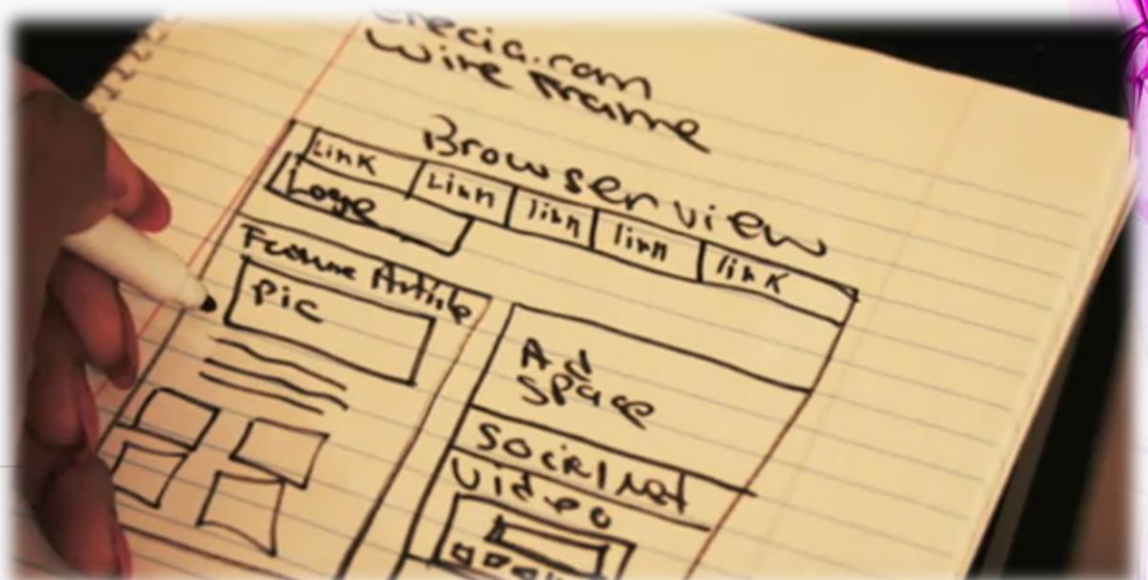 wire frame
Browser view
Link Link link link link
Loge
Feature Article
Pic
Ad
space
social net
video